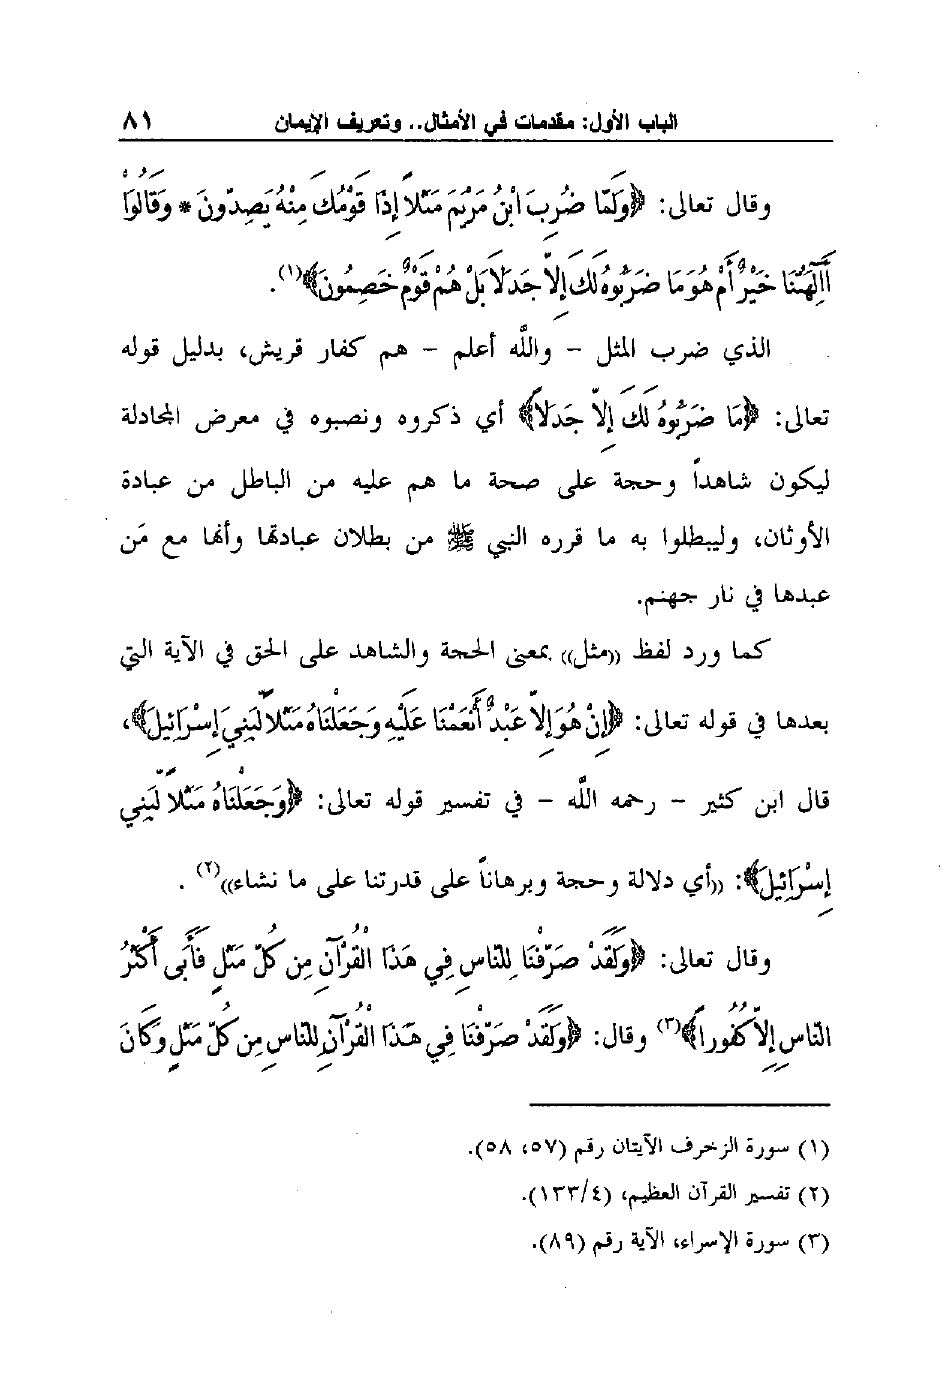 الباب الأول: مقدمات في الأمثال.. وتعريف الإيمان ٨١
وقال تعالى: ﴿وَلَمَّا ضُرِبَ ابْنُ مَرْيَمَ مَثَلاً إِذَا قَوْمُكَ مِنْهُ يَصِدّونَ * وَقَالُواْ
أَآلِهَتُنَا خَيْرٌ أَمْ هُوَ مَا ضَرَبُوهُ لَكَ إِلاّ جَدَلاَ بَلْ هُمْ قَوْمٌ خَصِمُونَ﴾(١).
الذي ضرب المثل – والله أعلم – هم كفار قريش، بدليل قوله
تعالى: ﴿مَا ضَرَبُوهُ لَكَ إِلاّ جَدَلاً﴾ أي ذكروه ونصبوه في معرض المجادلة
ليكون شاهداً وحجة على صحة ما هم عليه من الباطل من عبادة
الأوثان، وليبطلوا به ما قرره النبي ﷺ من بطلان عبادتها وأنها مع مَن
عبدها في نار جهنم.
كما ورد لفظ ((مثل)) بمعنى الحجة والشاهد على الحق في الآية التي
بعدها في قوله تعالى: ﴿إِنْ هُوَ إِلاّ عَبْدٌ أَنْعَمْنَا عَلَيْهِ وَجَعَلْنَاهُ مَثَلاً لّبَنِيَ إِسْرَائِيلَ﴾،
قال ابن كثير – رحمه الله – في تفسير قوله تعالى: ﴿وَجَعَلْنَاهُ مَثَلاً لّبَنِي
إِسْرَائِيلَ﴾: ((أي دلالة وحجة وبرهاناً على قدرتنا على ما نشاء))(٢) .
وقال تعالى: ﴿وَلَقَدْ صَرّفْنَا لِلنّاسِ فِي هَذَا الْقُرْآنِ مِن كُلّ مَثَلٍ فَأَبَى أَكْثَرُ
النّاسِ إِلاّ كُفُوراً﴾(٣) وقال: ﴿وَلَقَدْ صَرّفْنَا فِي هَذَا الْقُرْآنِ لِلنّاسِ مِن كُلّ مَثَلٍ وَكَانَ
(١) سورة الزخرف الآيتان رقم (٥٧، ٥٨).
(٢) تفسير القرآن العظيم، (١٣٣/٤).
(٣) سورة الإسراء، الآية رقم (٨٩).